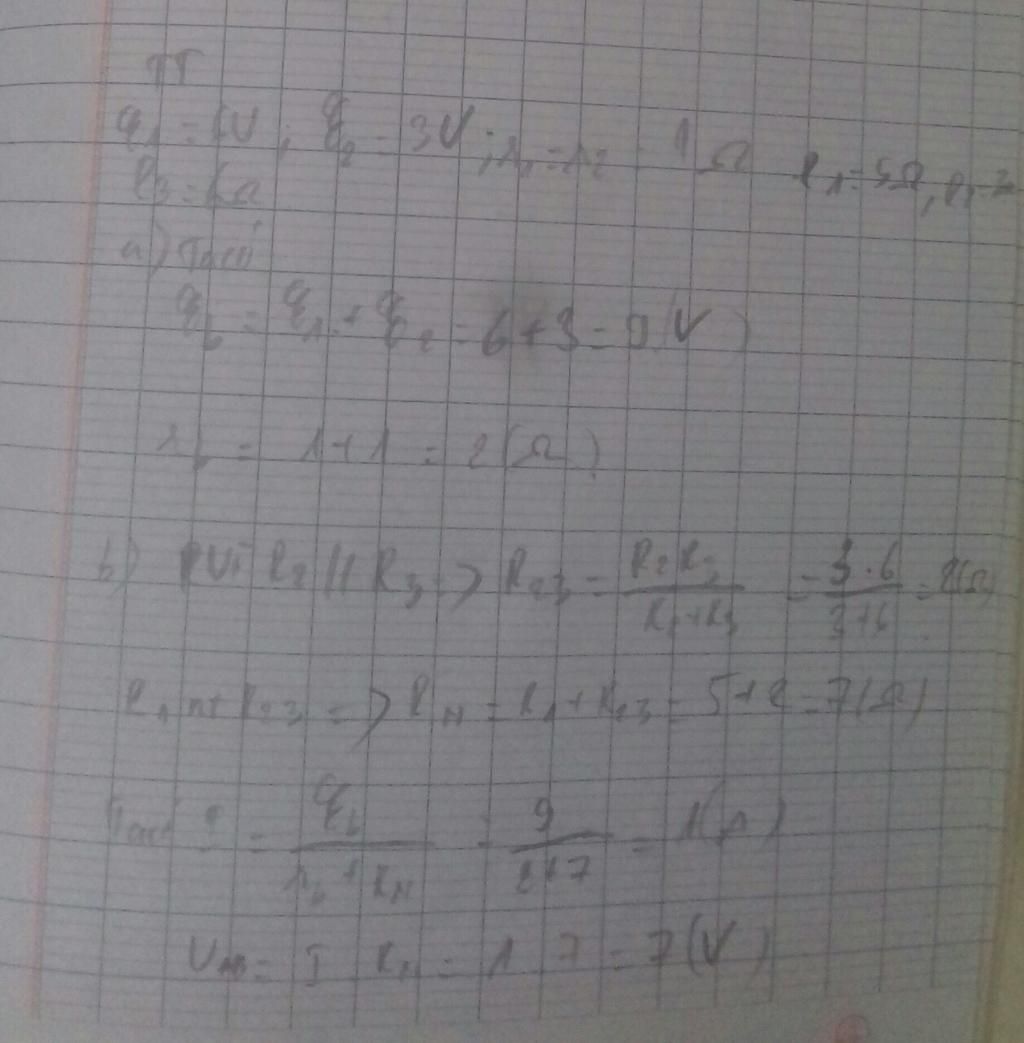 TT
ξ₁ = 6V, ξ₂ = 3V; r₁ = r₂ = 1Ω R₁ = 5Ω,
R₃ = 6Ω
a) Ta có
ξb = ξ₁ + ξ₂ = 6 + 3 = 9(V)
rb = 1 + 1 = 2(Ω)
b) R₂ // R₃ => R₂₃ = R₂R₃ / R₂+R₃ = 3.6 / 3+6 = 2(Ω)
R₁ nt R₂₃ => RN = R₁ + R₂₃ = 5 + 2 = 7(Ω)
Ta có I = ξb / rb + RN = 9 / 2+7 = 1(A)
UAB = I RN = 1 7 = 7(V)